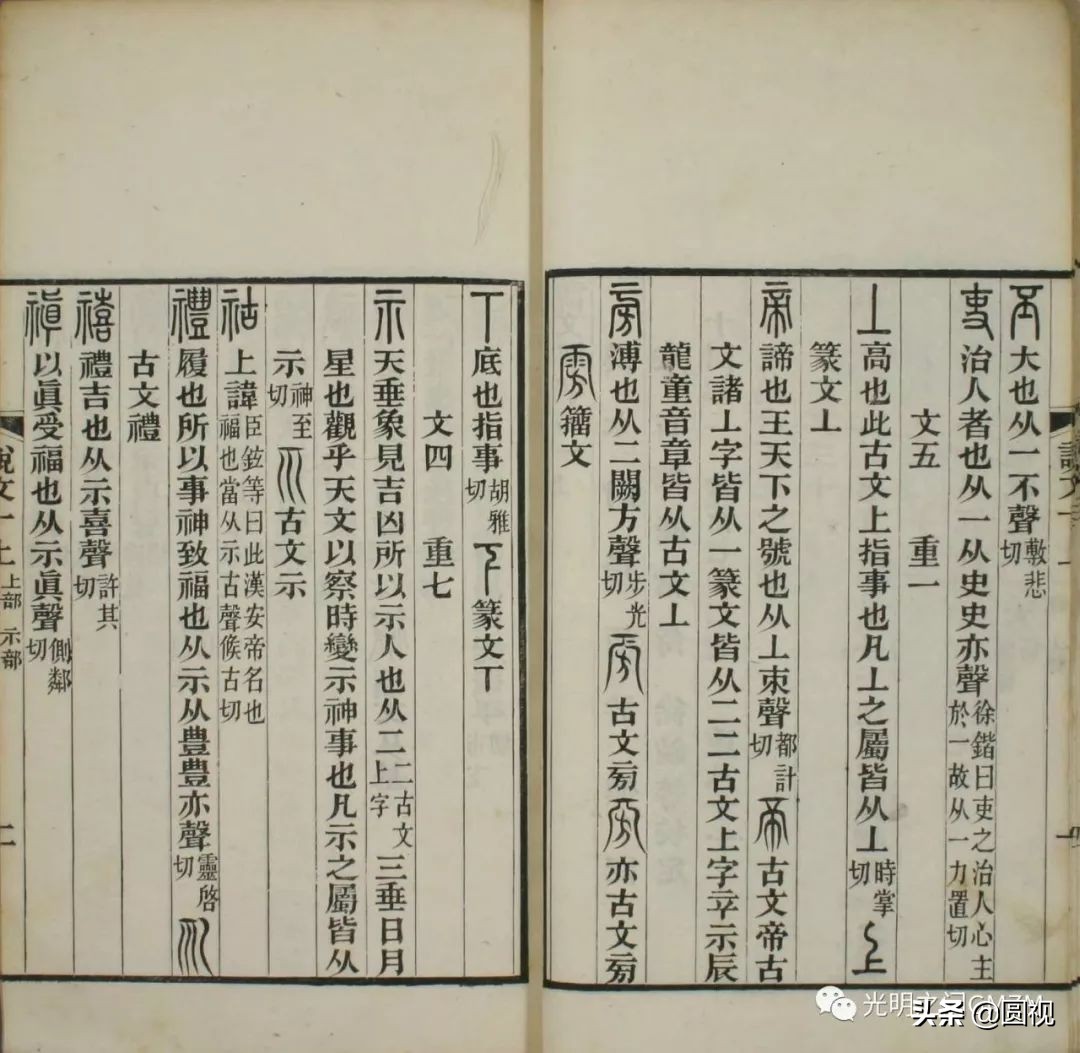 丕大也从一不聲敷悲切
吏治人者也从一从史史亦聲徐鍇曰吏之治人心主於一故从一力置切
文五 重一
丄高也此古文上指事也凡丄之屬皆从丄時掌切上
篆文丄
帝諦也王天下之號也从丄朿聲都計切帝古文帝古
文諸丄字皆从一篆文皆从二二古文上字䇂示辰
龍童音章皆从古文丄
旁溥也从二闕方聲步光切旁古文㫄旁亦古文㫄
雱籀文
丅底也指事胡雅切下篆文丅
文四 重七
示天垂象見吉凶所以示人也从二二古文上字三垂日月
星也觀乎天文以察時變示神事也凡示之屬皆从
示神至切示古文示
祜上諱臣鉉等曰此漢安帝名也福也當从示古聲候古切
禮履也所以事神致福也从示从豊豊亦聲靈啓切
古文禮
禧禮吉也从示喜聲許其切
禛以眞受福也从示眞聲側鄰切
說文一上 上部 示部 二
光明之门GMZM
头条 @圆视